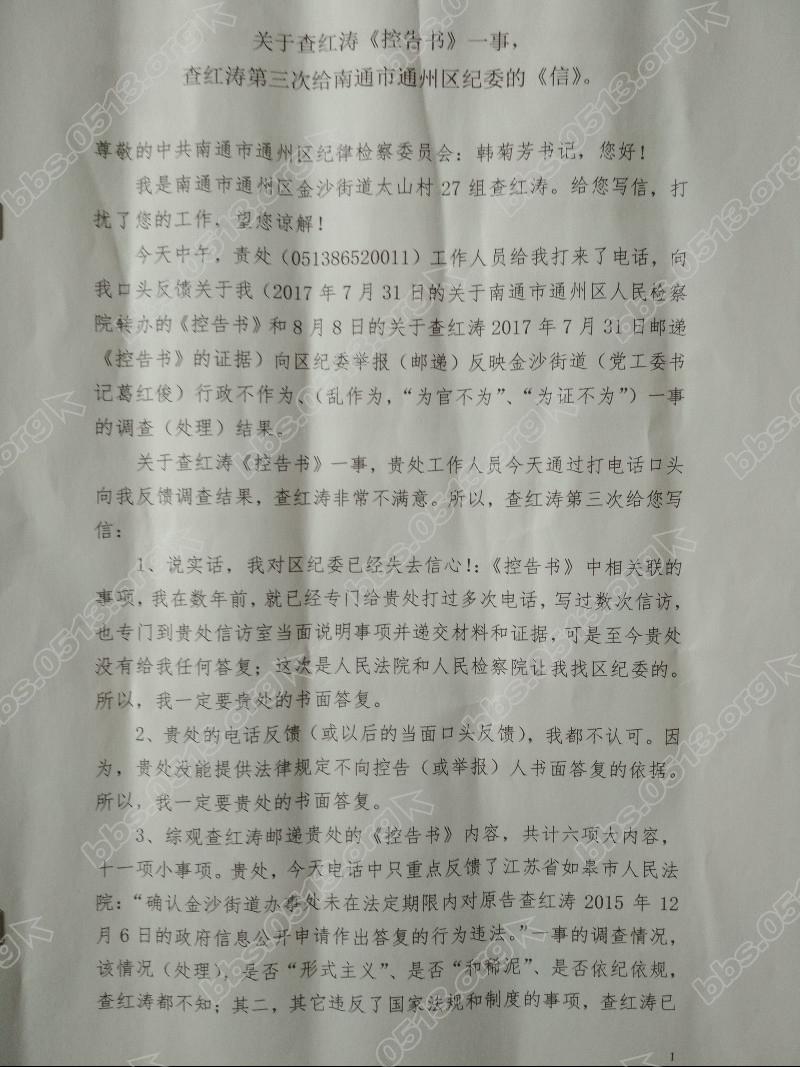 关于查红涛《控告书》一事，
查红涛第三次给南通市通州区纪委的《信》。
尊敬的中共南通市通州区纪律检察委员会：韩菊芳书记，您好！
我是南通市通州区金沙街道太山村 27 组查红涛。给您写信，打
扰了您的工作，望您谅解！
今天中午，贵处（051386520011）工作人员给我打来了电话，向
我口头反馈关于我（2017 年 7 月 31 日的关于南通市通州区人民检察
院转办的《控告书》和 8 月 8 日的关于查红涛 2017 年 7 月 31 日邮递
《控告书》的证据）向区纪委举报（邮递）反映金沙街道（党工委书
记葛红俊）行政不作为、（乱作为，“为官不为”、“为证不为”）一事
的调查（处理）结果。
关于查红涛《控告书》一事，贵处工作人员今天通过打电话口头
向我反馈调查结果，查红涛非常不满意。所以，查红涛第三次给您写
信：
1、说实话，我对区纪委已经失去信心！：《控告书》中相关联的
事项，我在数年前，就已经专门给贵处打过多次电话，写过数次信访，
也专门到贵处信访室当面说明事项并递交材料和证据，可是至今贵处
没有给我任何答复；这次是人民法院和人民检察院让我找区纪委的。
所以，我一定要贵处的书面答复。
2、贵处的电话反馈（或以后的当面口头反馈），我都不认可。因
为，贵处没能提供法律规定不向控告（或举报）人书面答复的依据。
所以，我一定要贵处的书面答复。
3、综观查红涛邮递贵处的《控告书》内容，共计六项大内容，
十一项小事项。贵处，今天电话中只重点反馈了江苏省如皋市人民法
院：“确认金沙街道办事处未在法定期限内对原告查红涛 2015 年 12
月 6 日的政府信息公开申请作出答复的行为违法。”一事的调查情况，
该情况（处理），是否“形式主义”、是否“和稀泥”、是否依纪依规，
查红涛都不知；其二，其它违反了国家法规和制度的事项，查红涛已
1
bbs.0513.org